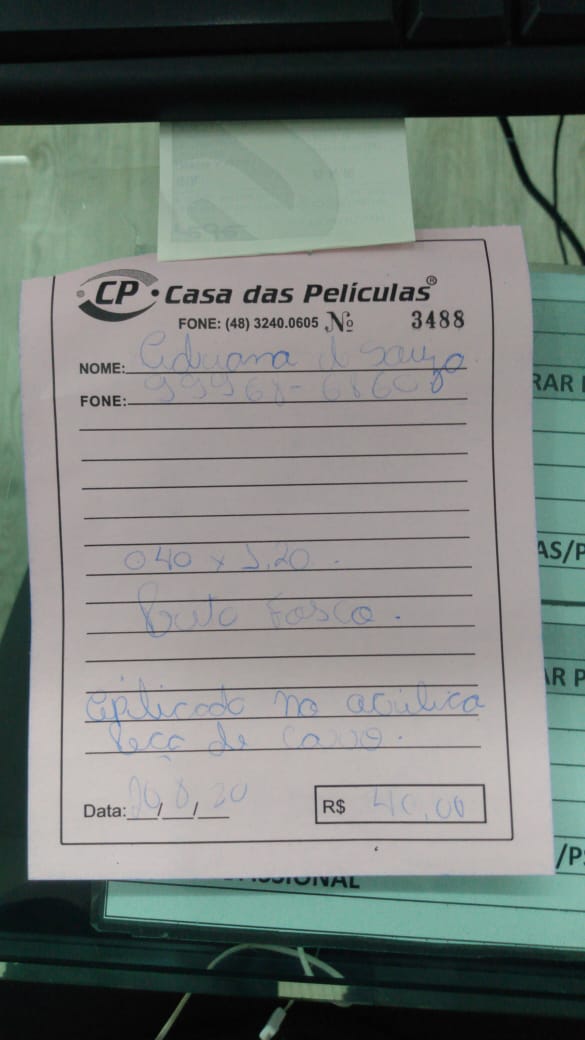 CP Casa das Películas®
FONE: (48) 3240.0605 Nº 3488
NOME: Adriana d Souza
FONE: 99968-6860
040 x 1,20.
Preto Fosco.
aplicado no acrílico
peça de carro.
Data: 20/8/20 R$ 40,00
RAR
AS/P
AR P
/PS
SSIONAL